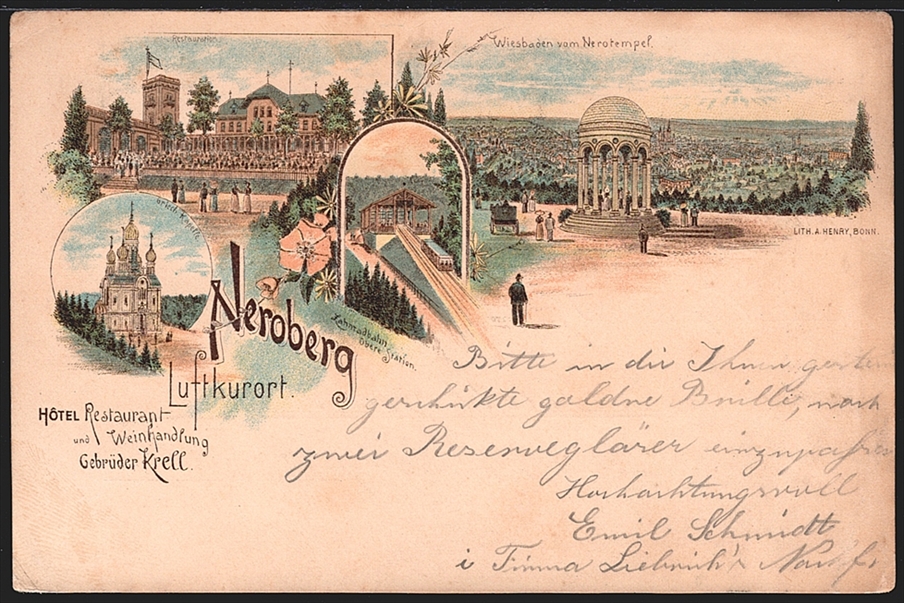 Restauration.
Wiesbaden vom Nerotempel.
Griech. Kapelle
LITH. A. HENRY, BONN.
Zahnradbahn
obere Station.
Neroberg
Luftkurort.
HÔTEL Restaurant
und Weinhandlung
Gebrüder Krell.
Bitte in die Ihnen gestern
geschikte goldne Brille, noch
zwei Reservegläser einzupassen
Hochachtungsvoll
Emil Schmidt
i Firma Liebrich's